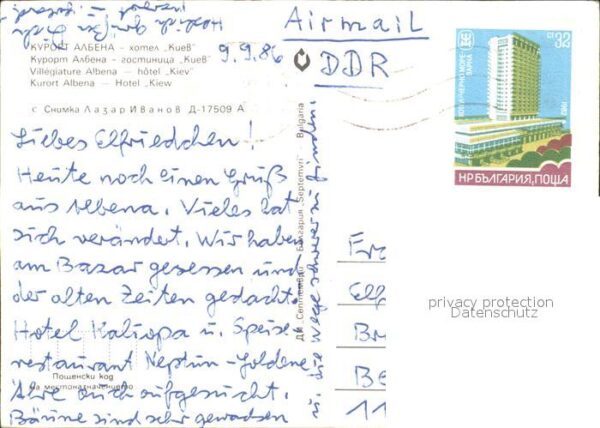 Airmail
DDR
9.9.86
КУРОРТ АЛБЕНА – хотел „Киев"
Курорт Албена – гостиница „Киев"
Villégiature Albena – hôtel „Kiev"
Kurort Albena – Hotel „Kiew
с Снимка Лазар Иванов Д-17509 А
Liebes Elfriedchen!
Heute noch einen Gruß
aus Albena. Vieles hat
sich verändert. Wir haben
am Bazar gesessen und
der alten Zeiten gedacht.
Hotel Kaliopa u. Speise-
restaurant Neptun - Goldene
Ähre auch aufgesucht.
Bäume sind sehr gewachsen
u. die Wege schwerer zu finden.
Herzlich grüßt Dich
Пощенски код
на местоназначението
ДП „Септември" България „Septemvri" Bulgaria
ст 32
ЧЕРНО МОРЕ
ВАРНА
1981
НР БЪЛГАРИЯ, ПОЩА
Fra
Elf
Br
Be
11
privacy protection
Datenschutz